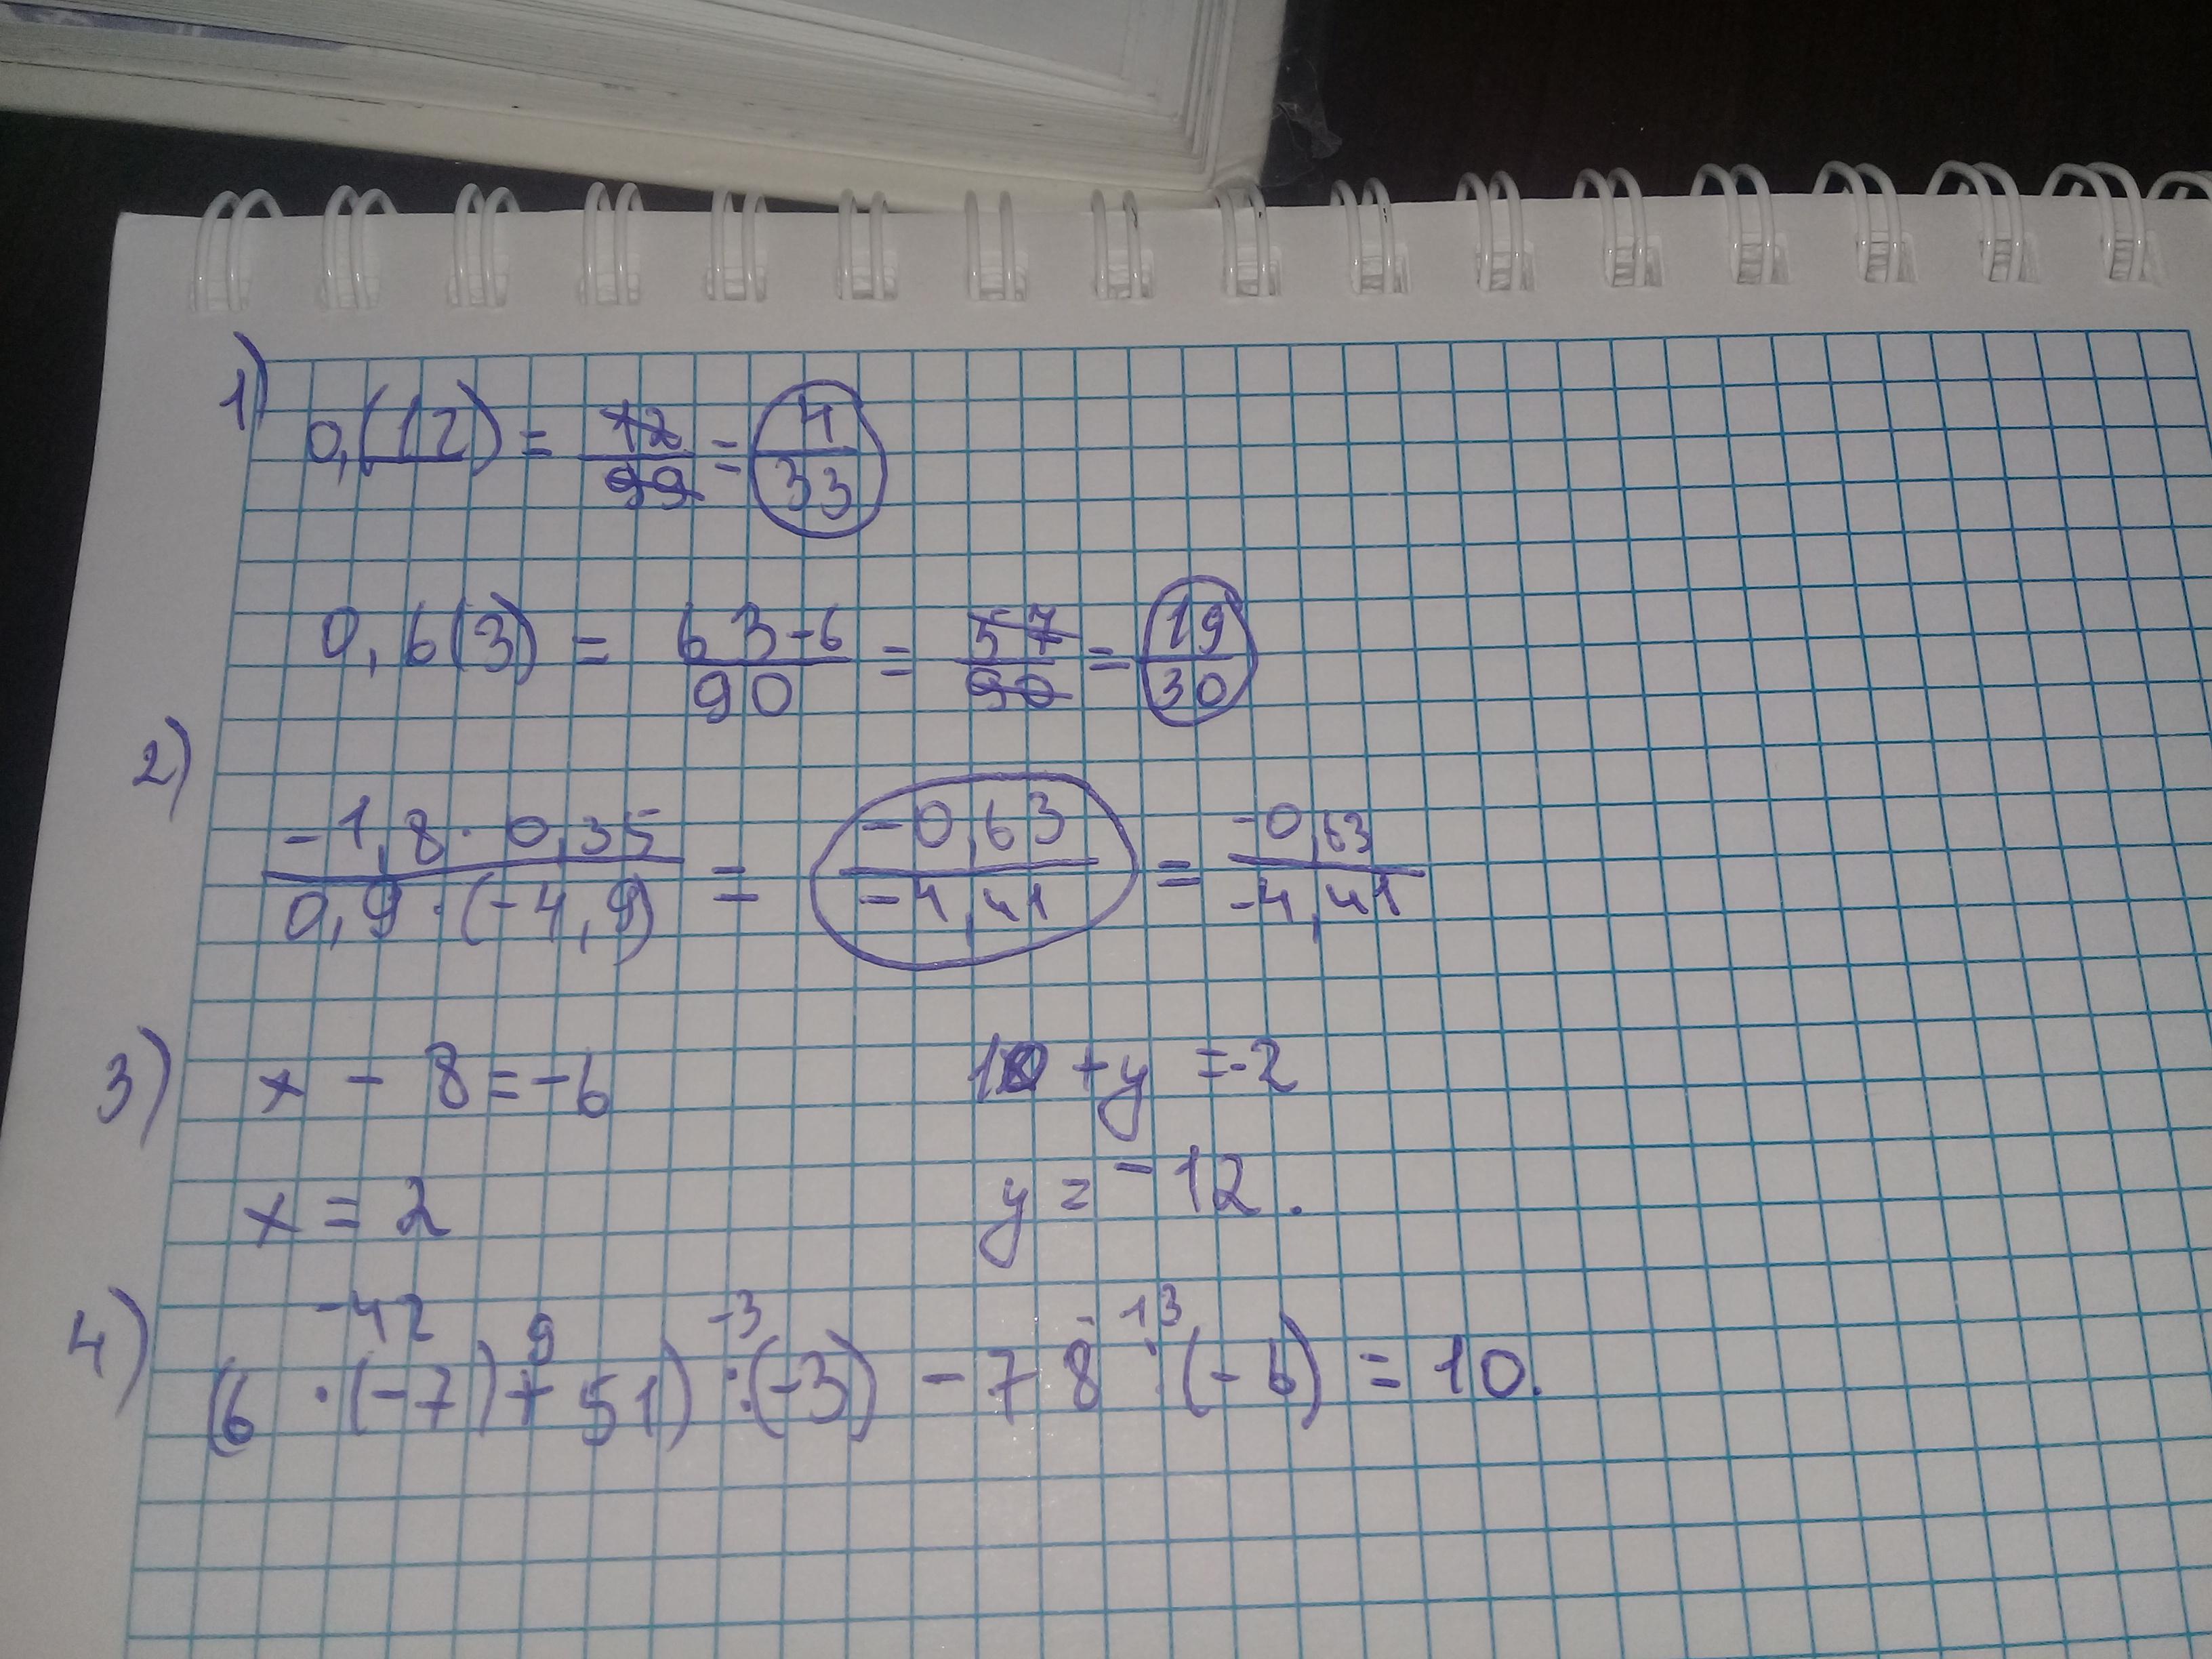 1)
0,(12) = 12/99 = 4/33
0,6(3) = 63-6/90 = 57/90 = 19/30
2)
-1,8 · 0,35/0,9 · (-4,9) = -0,63/-4,41 = -0,63/-4,41
3) x - 8 = -6 10 + y = -2
x = 2 y = -12.
4) -42 9 -3 -13
(6 · (-7) + 51) : (-3) - 78 : (-6) = 10.